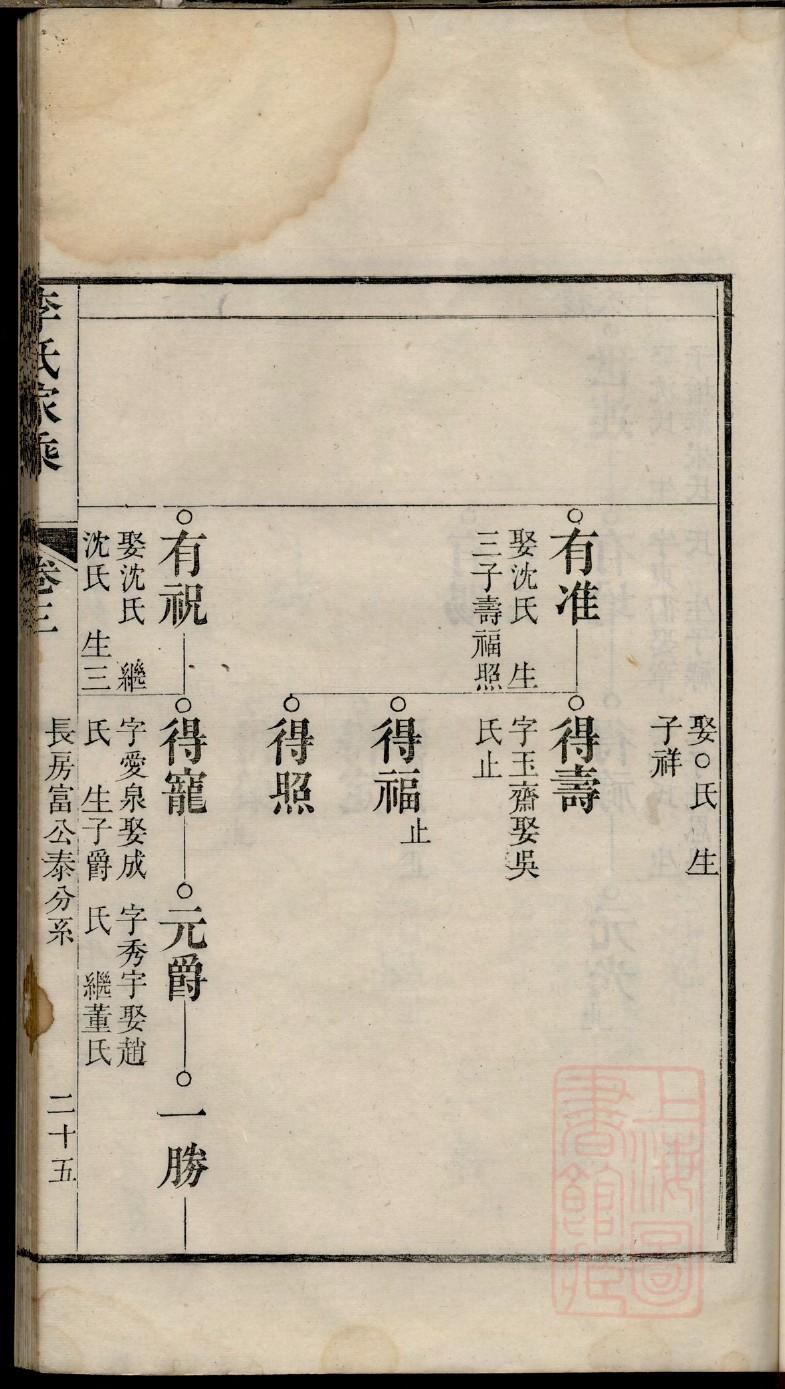 娶○氏生
子祥
○有准
娶沈氏 生
三子壽福照
○得壽
字玉齋娶吳
氏止
○得福
止
○得照
○有祝
娶沈氏 繼
沈氏 生三
○得寵
字愛泉娶成
氏 生子爵
○元爵
字秀宇娶趙
氏 繼董氏
○一勝
李氏家乘
卷三
長房富公泰分系
二十五
上海圖
書館藏